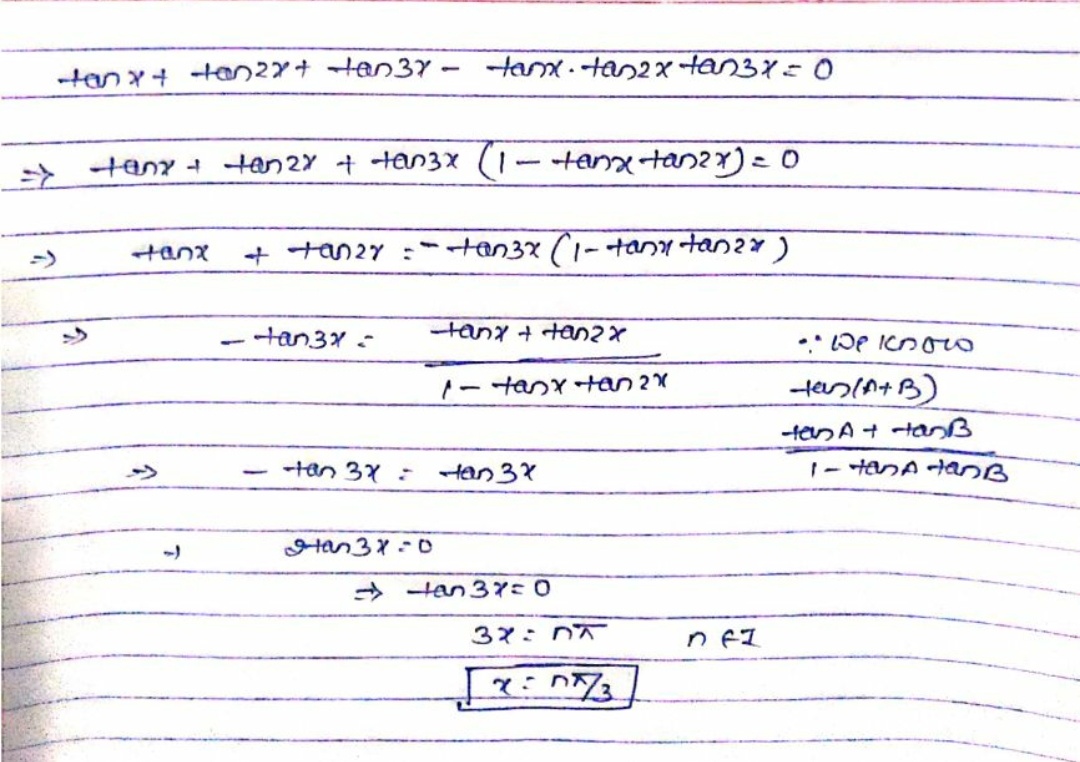 tanx + tan2x + tan3x - tanx · tan2x tan3x = 0
⇒ tanx + tan2x + tan3x (1 - tanx tan2x) = 0
⇒ tanx + tan2x = - tan3x (1 - tanx tan2x)
⇒ - tan3x = tanx + tan2x / 1 - tanx tan2x
∵ we know
tan(A+B)
tanA + tanB / 1 - tanA tanB
⇒ - tan3x = tan3x
⇒ 2tan3x = 0
⇒ tan3x = 0
3x = nπ n ∈ I
x = nπ/3